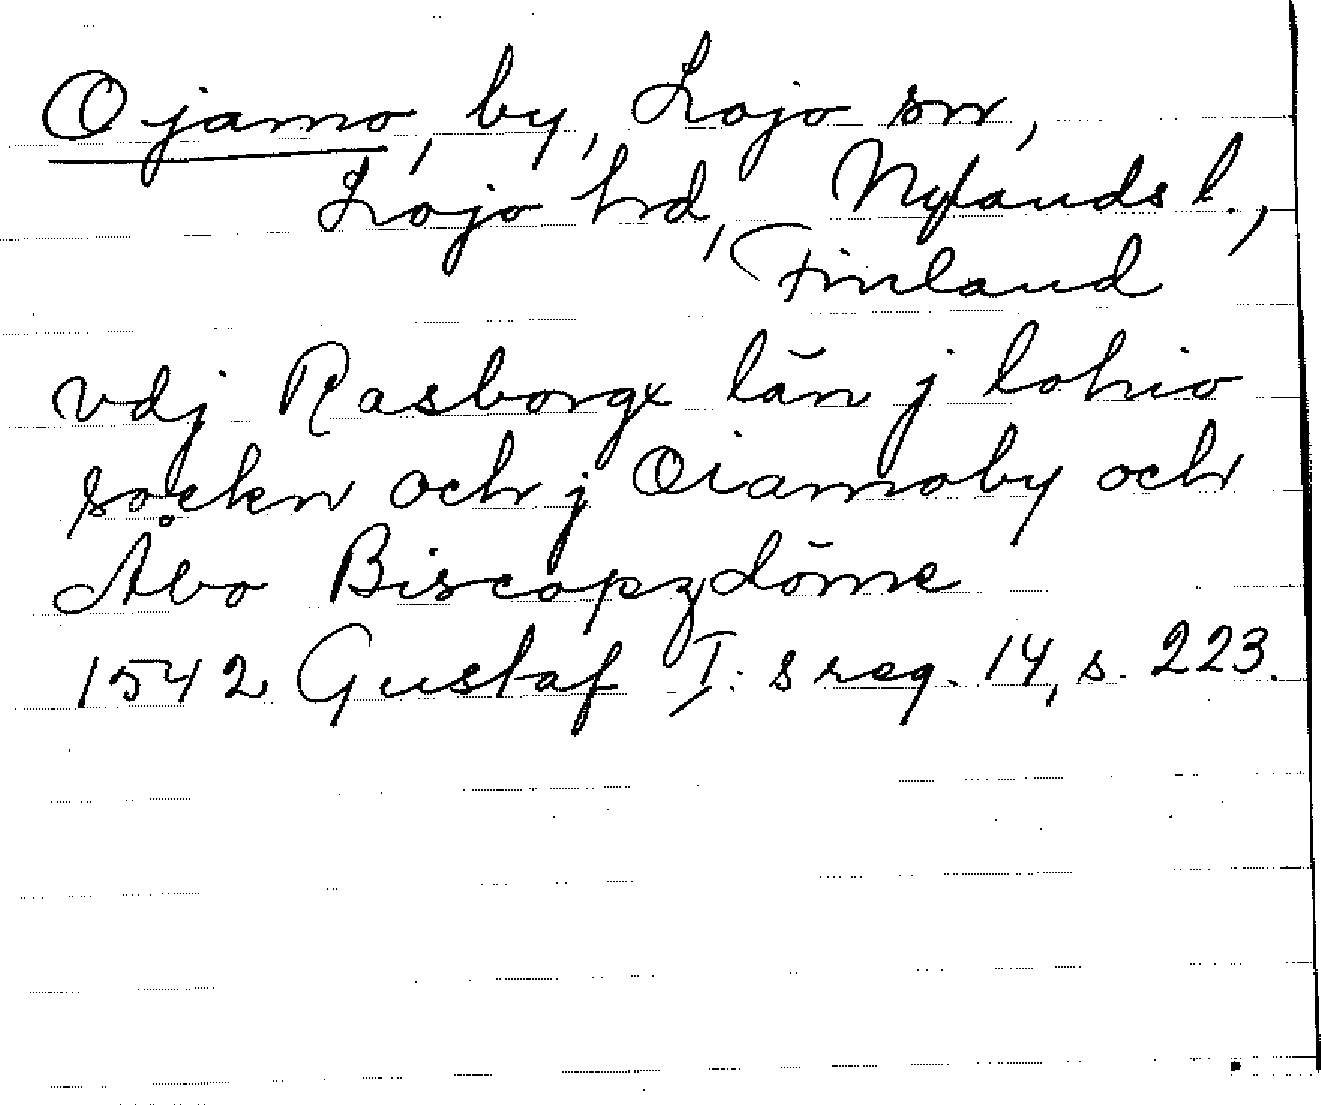 Ojamo, by, Lojo sn,
Lojo hd, Nylands l.,
Finland
vdj Rasborgx län j lohio
sockn och j Oiamoby och
Åbo Biscopzdöme
1542 Gustaf I:s reg. 14, s. 223.